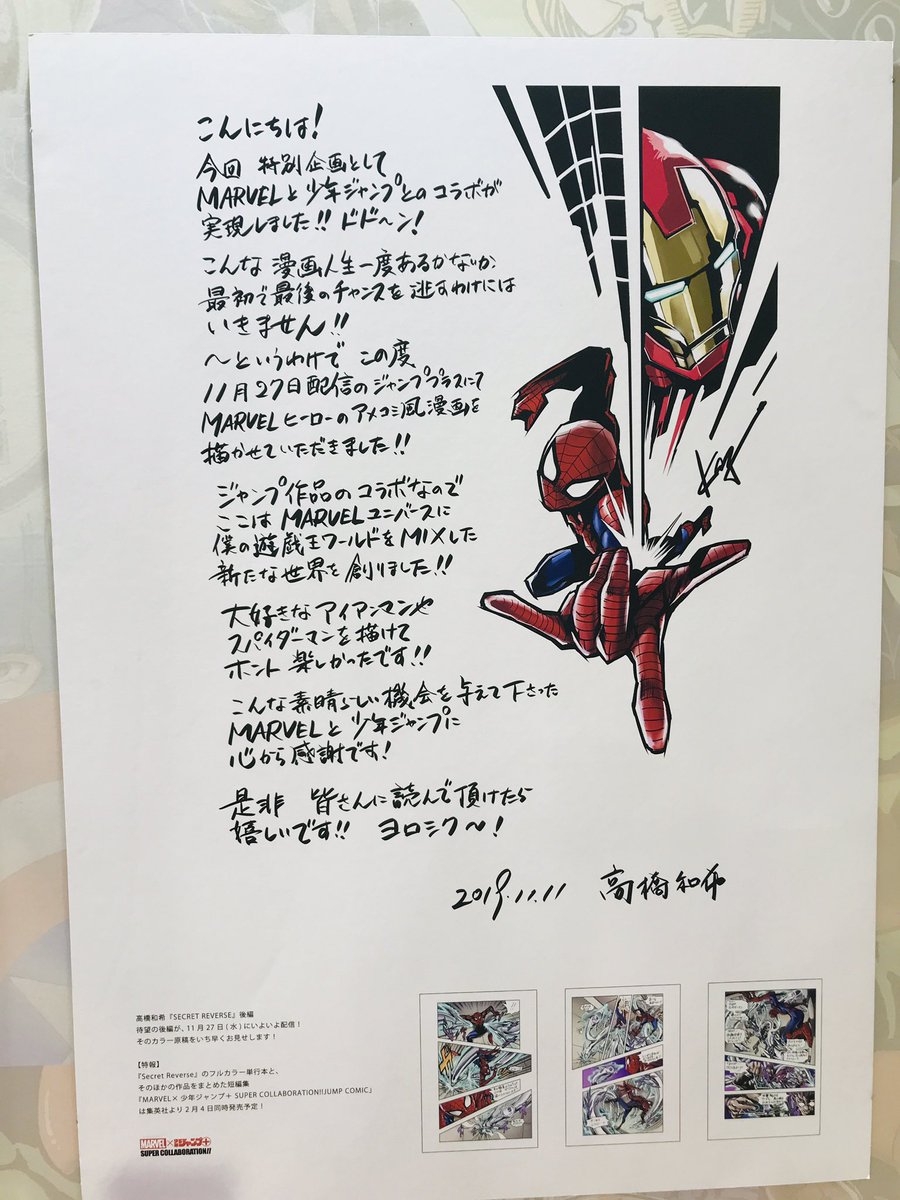 こんにちは!
今回 特別企画として
MARVELと少年ジャンプとのコラボが
実現しました!! ドド〜ン!
こんな 漫画人生一度あるかないか
最初で最後のチャンスを逃すわけには
いきません!!
〜というわけで この度
11月27日配信のジャンププラスにて
MARVELヒーローのアメコミ風漫画を
描かせていただきました!!
ジャンプ作品のコラボなので
ここはMARVELユニバースに
僕の遊戯王ワールドをMIXした
新たな世界を創りました!!
大好きなアイアンマンや
スパイダーマンを描けて
ホント 楽しかったです!!
こんな素晴らしい機会を与えて下さった
MARVELと少年ジャンプに
心から感謝です!
是非 皆さんに読んで頂けたら
嬉しいです!! ヨロシク〜!
2019.11.11 高橋和希
高橋和希『SECRET REVERSE』後編
待望の後編が、11月27日(水)にいよいよ配信!
そのカラー原稿をいち早くお見せします!
【特報】
『Secret Reverse』のフルカラー単行本と、
そのほかの作品をまとめた短編集
『MARVEL×少年ジャンプ+ SUPER COLLABORATION!!JUMP COMIC』
は集英社より2月4日同時発売予定!
MARVEL×少年ジャンプ+
SUPER COLLABORATION!!